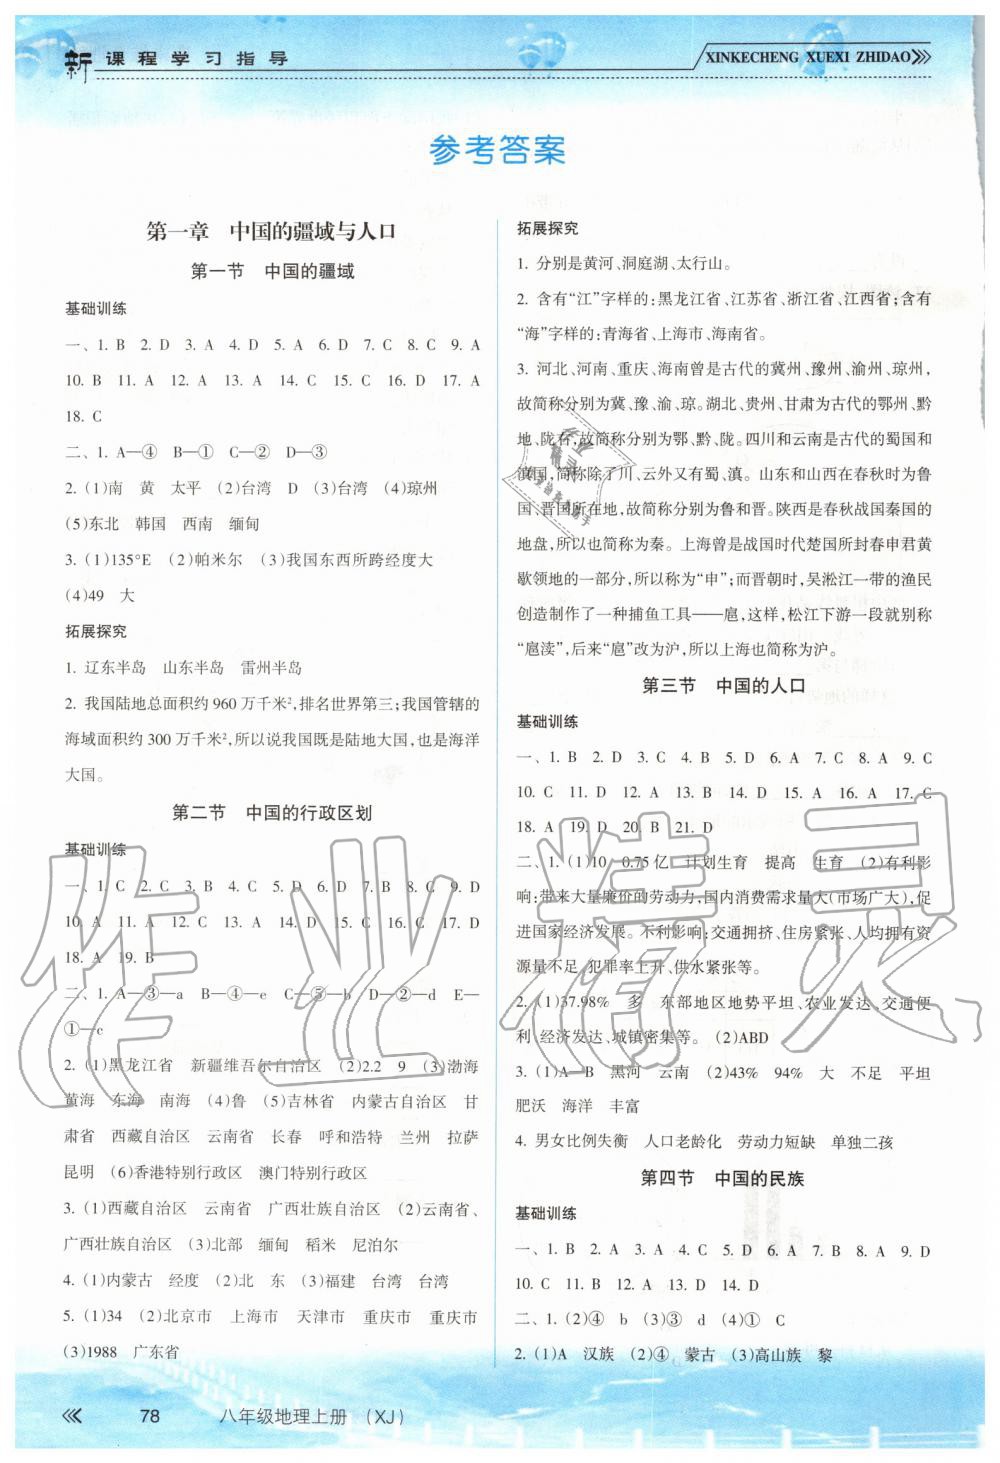 新课程学习指导
XINKECHENG XUEXI ZHIDAO
参考答案
第一章 中国的疆域与人口
第一节 中国的疆域
基础训练
一、1. B 2. D 3. A 4. D 5. A 6. D 7. C 8. C 9. A
10. B 11. A 12. A 13. A 14. C 15. C 16. D 17. A
18. C
二、1. A—④ B—① C—② D—③
2. (1)南 黄 太平 (2)台湾 D (3)台湾 (4)琼州
(5)东北 韩国 西南 缅甸
3. (1)135°E (2)帕米尔 (3)我国东西所跨经度大
(4)49 大
拓展探究
1. 辽东半岛 山东半岛 雷州半岛
2. 我国陆地总面积约 960 万千米²,排名世界第三;我国管辖的
海域面积约 300 万千米²,所以说我国既是陆地大国,也是海洋
大国。
第二节 中国的行政区划
基础训练
一、1. C 2. C 3. B 4. C 5. D 6. B 7. C 8. C 9. D
10. A 11. A 12. C 13. A 14. D 15. C 16. C 17. D
18. A 19. B
二、1. A—③—a B—④—e C—⑤—b D—②—d E—
①—c
2. (1)黑龙江省 新疆维吾尔自治区 (2)2.2 9 (3)渤海
黄海 东海 南海 (4)鲁 (5)吉林省 内蒙古自治区 甘
肃省 西藏自治区 云南省 长春 呼和浩特 兰州 拉萨
昆明 (6)香港特别行政区 澳门特别行政区
3. (1)西藏自治区 云南省 广西壮族自治区 (2)云南省、
广西壮族自治区 (3)北部 缅甸 稻米 尼泊尔
4. (1)内蒙古 经度 (2)北 东 (3)福建 台湾 台湾
5. (1)34 (2)北京市 上海市 天津市 重庆市 重庆市
(3)1988 广东省
拓展探究
1. 分别是黄河、洞庭湖、太行山。
2. 含有“江”字样的:黑龙江省、江苏省、浙江省、江西省;含有
“海”字样的:青海省、上海市、海南省。
3. 河北、河南、重庆、海南曾是古代的冀州、豫州、渝州、琼州,
故简称分别为冀、豫、渝、琼。湖北、贵州、甘肃为古代的鄂州、黔
地、陇右,故简称分别为鄂、黔、陇。四川和云南是古代的蜀国和
滇国,简称除了川、云外又有蜀、滇。山东和山西在春秋时为鲁
国、晋国所在地,故简称分别为鲁和晋。陕西是春秋战国秦国的
地盘,所以也简称为秦。上海曾是战国时代楚国所封春申君黄
歇领地的一部分,所以称为“申”;而晋朝时,吴淞江一带的渔民
创造制作了一种捕鱼工具——扈,这样,松江下游一段就别称
“扈渎”,以后“扈”改为沪,所以上海也简称为沪。
第三节 中国的人口
基础训练
一、1. B 2. D 3. C 4. A 5. D 6. A 7. C 8. A 9. C
10. C 11. D 12. B 13. A 14. D 15. A 16. A 17. C
18. A 19. D 20. B 21. D
二、1. (1)10 0.75 亿 计划生育 提高 生育 (2)有利影
响:带来大量廉价的劳动力,国内消费需求量大(市场广大),促
进国家经济发展。不利影响:交通拥挤、住房紧张、人均拥有资
源量不足、犯罪率上升、供水紧张等。
2. (1)37.98% 多 东部地区地势平坦、农业发达、交通便
利、经济发达、城镇密集等。 (2)ABD
3. (1)A—B 黑河 云南 (2)43% 94% 大 不足 平坦
肥沃 海洋 丰富
4. 男女比例失衡 人口老龄化 劳动力短缺 单独二孩
第四节 中国的民族
基础训练
一、1. B 2. A 3. A 4. C 5. D 6. A 7. A 8. C 9. D
10. C 11. B 12. A 13. D 14. D
二、1. (2)④ b (3)③ d (4)① C
2. (1)A 汉族 (2)④ 蒙古 (3)高山族 黎
78 八年级地理上册 (XJ)
作业精灵